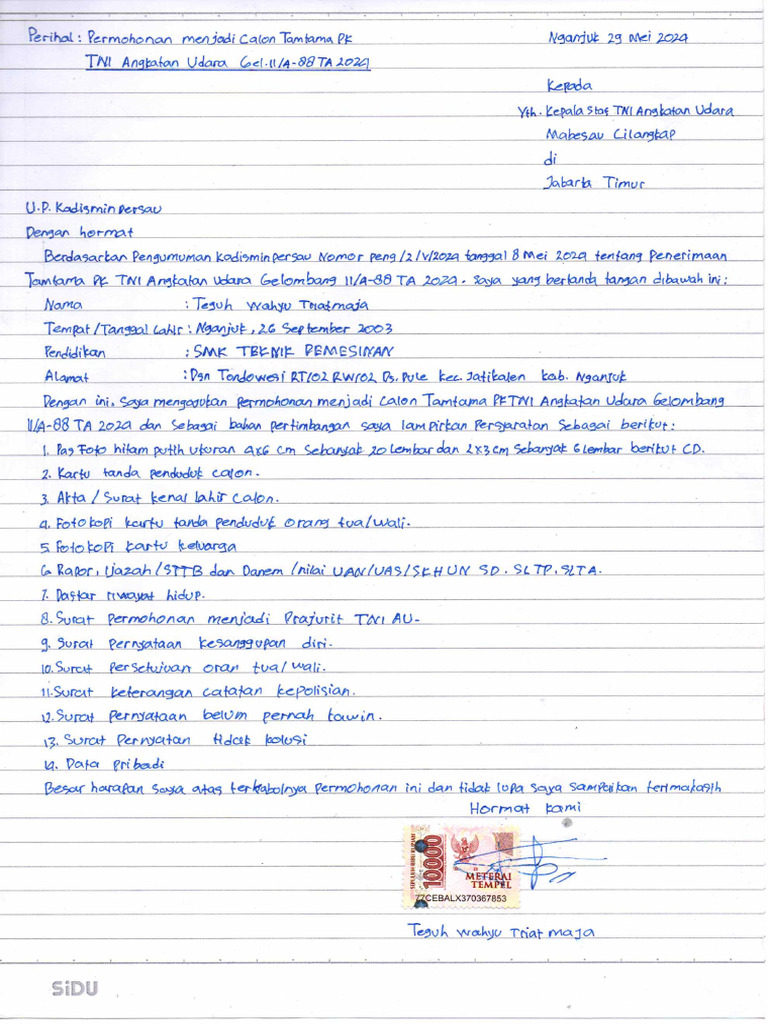 Perihal : Permohonan menjadi Calon Tamtama PK
Nganjuk 29 Mei 2024
TNI Angkatan Udara Gel.II/A-88 TA 2024
Kepada
Yth. Kepala Staf TNI Angkatan Udara
Mabesau Cilangkap
di
Jakarta Timur
U.P. Kadisminpersau
Dengan hormat
Berdasarkan Pengumuman Kadisminpersau Nomor peng/2/V/2024 tanggal 8 Mei 2024 tentang Penerimaan
Tamtama PK TNI Angkatan Udara Gelombang II/A-88 TA 2024. Saya yang bertanda tangan dibawah ini :
Nama : Teguh Wahyu Triatmaja
Tempat/Tanggal Lahir : Nganjuk, 26 September 2003
Pendidikan : SMK TEKNIK PEMESINAN
Alamat : Dsn Tondowesi RT/02 RW/02 Ds. Pule kec. Jatikalen kab. Nganjuk
Dengan ini, Saya mengajukan permohonan menjadi Calon Tamtama PK TNI Angkatan Udara Gelombang
II/A-88 TA 2024 dan Sebagai bahan pertimbangan saya lampirkan Persyaratan Sebagai berikut :
1. Pas Foto hitam putih ukuran 4x6 cm Sebanyak 20 Lembar dan 2x3 cm Sebanyak 6 lembar berikut CD.
2. Kartu tanda penduduk calon.
3. Akta / Surat kenal lahir Calon.
4. Fotokopi kartu tanda penduduk orang tua/wali.
5. Fotokopi kartu keluarga
6. Rapor, Ijazah/STTB dan Danem /nilai UAN/UAS/SKHUN SD. SLTP. SLTA.
7. Daftar riwayat hidup.
8. Surat Permohonan menjadi Prajurit TNI AU-
9. Surat pernyataan kesanggupan diri.
10. Surat Persetujuan oran tua/wali.
11. Surat keterangan catatan kepolisian.
12. Surat Pernyataan belum pernah kawin.
13. Surat Pernyatan tidak kolusi
14. Data pribadi
Besar harapan saya atas terkabolnya Permohonan ini dan tidak lupa saya sampaikan terimakasih
Hormat kami
10000
METERAI
TEMPEL
77CEBALX370367853
Teguh Wahyu Triat maja
SiDU